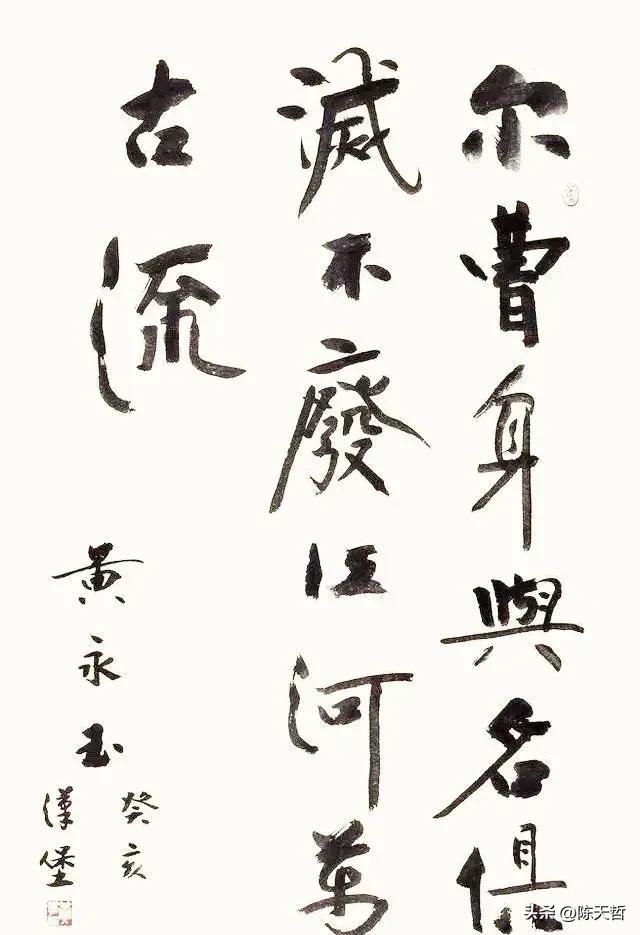 尔曹身與名俱
滅不廢江河萬
古流
黄永玉
癸亥
漢堡
头条 @陈天哲